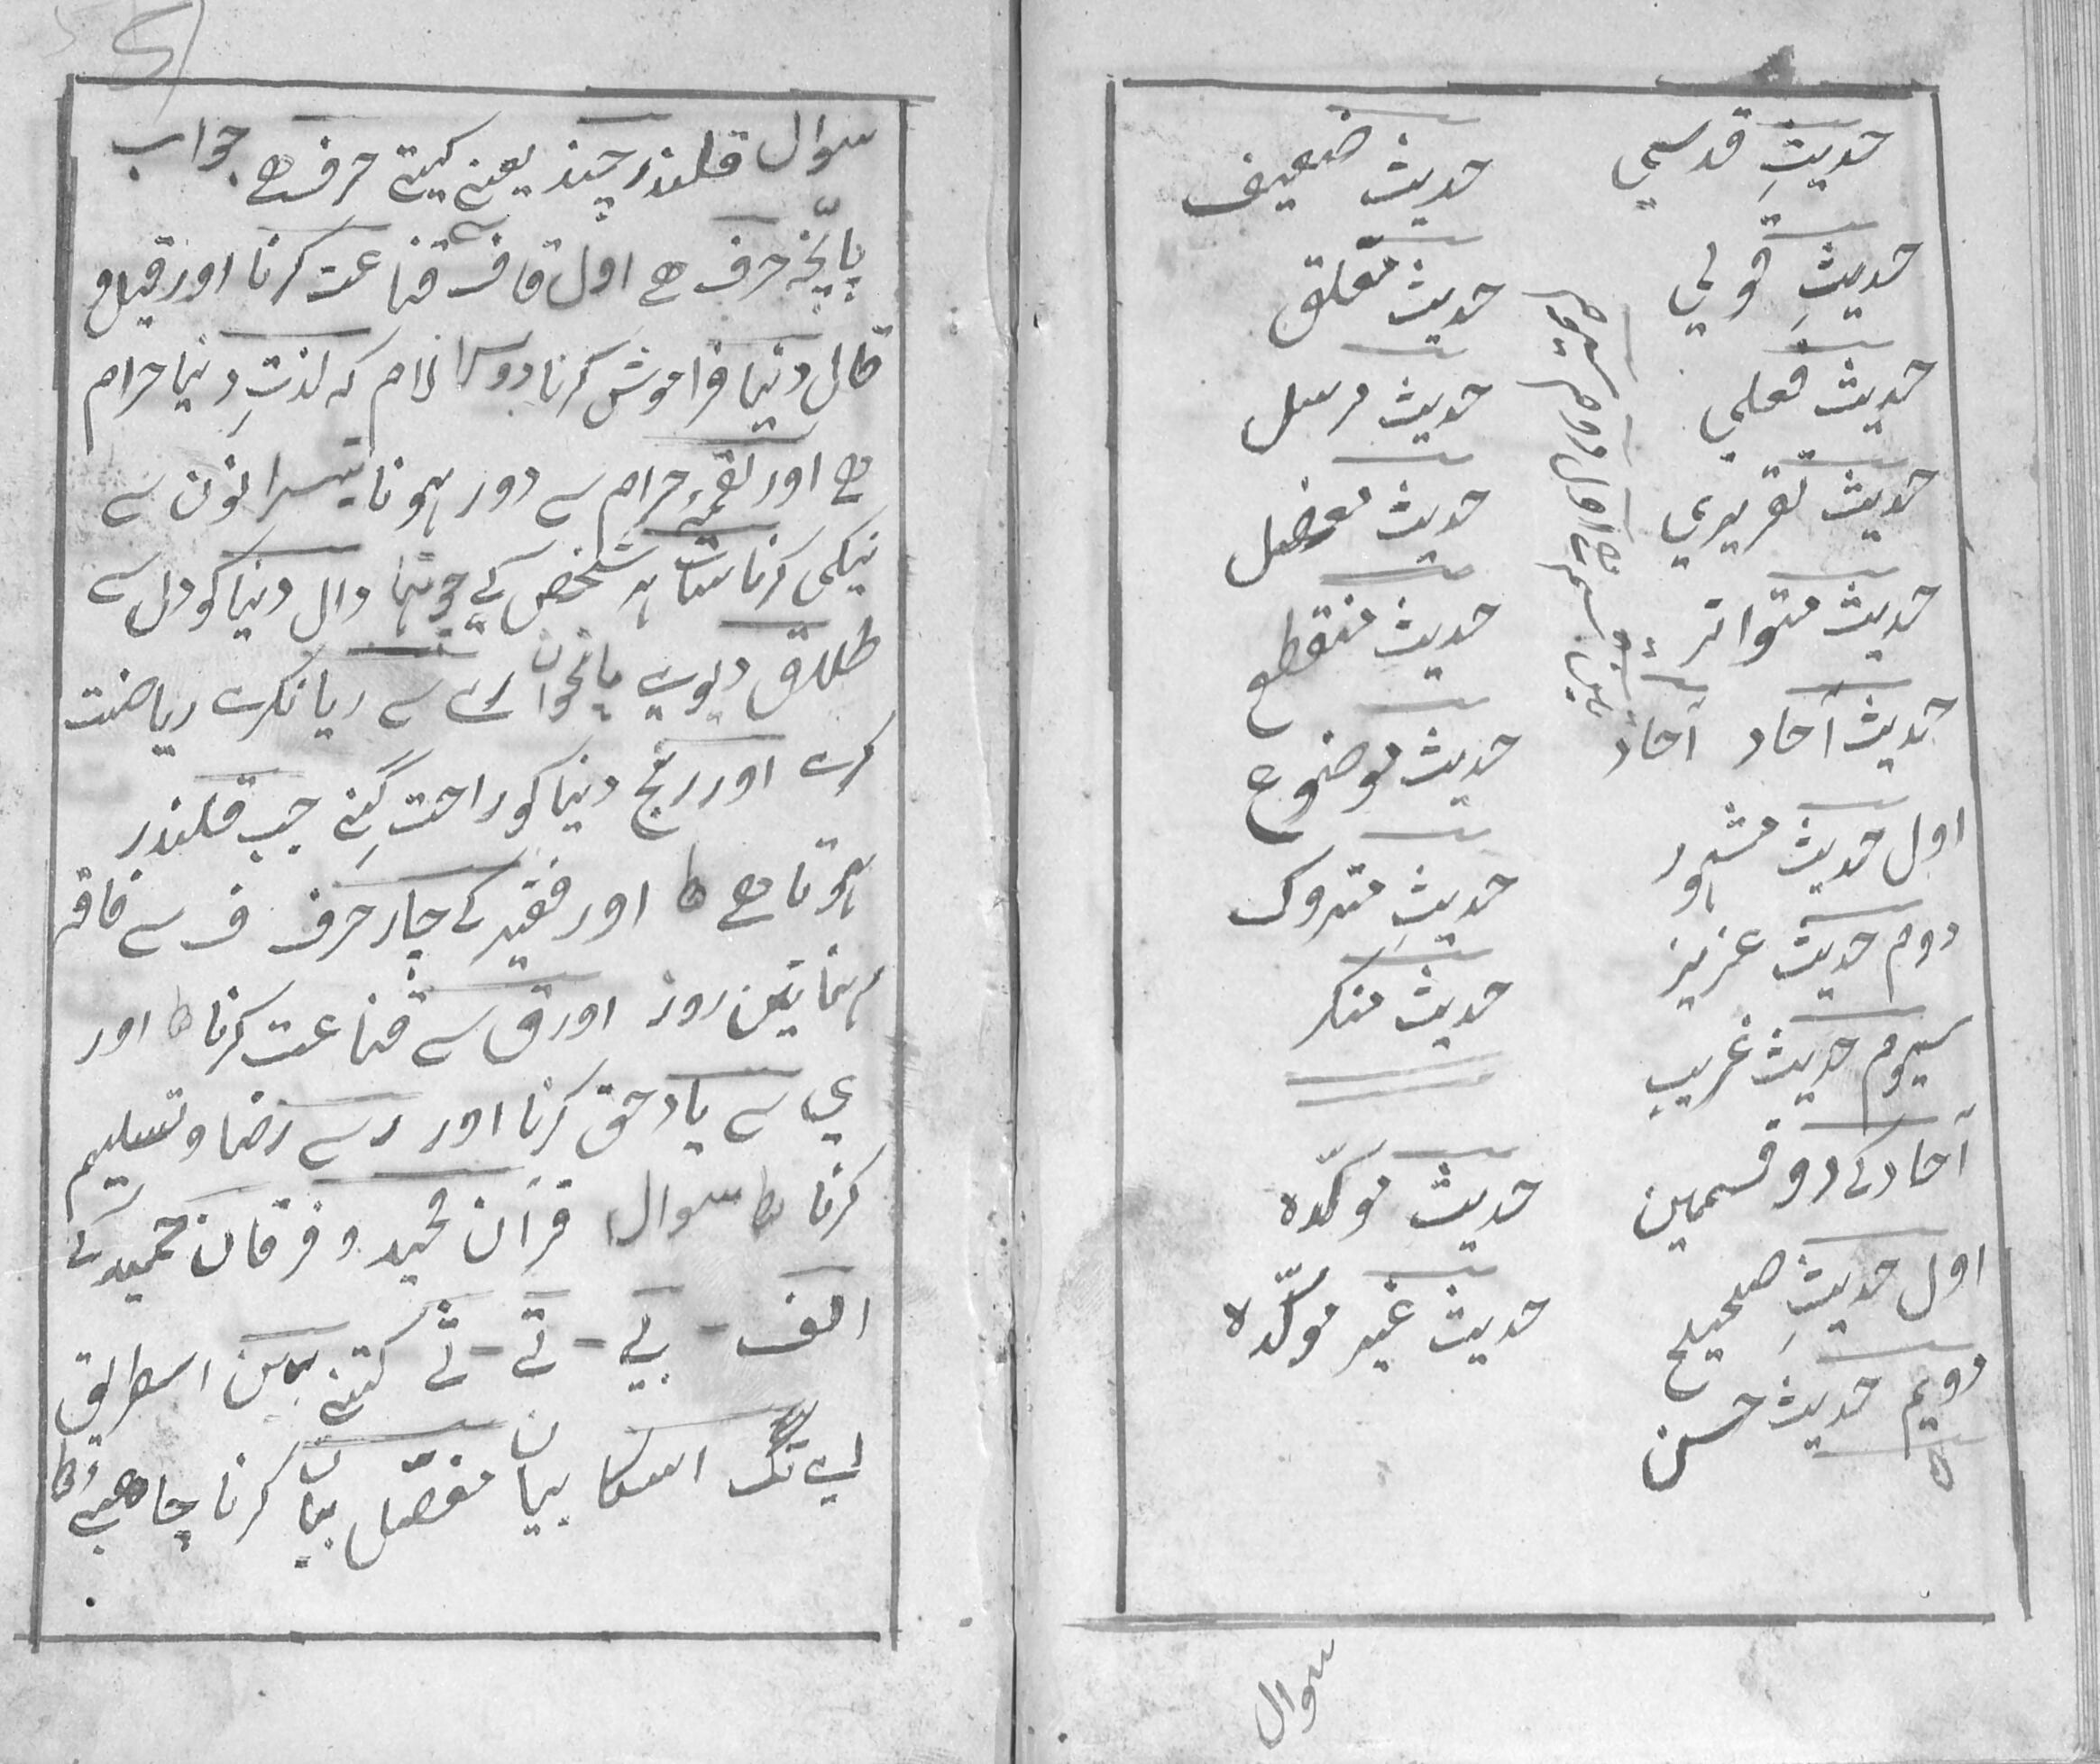 حدیثِ قدسي
حدیثِ قولي
حدیث فعلي
حدیث تقریري
حدیث متواتر
حدیث آحاد آحاد
اول حدیث مشہور
دوم حدیث عزیز
سیوم حدیث غریب
آحاد کے دو قسمین
اول حدیثِ صحیح
دویم حدیث حسن
حدیث ضعیف
حدیث معّلق
حدیث مرسل
حدیث معضل
حدیث منقطع
حدیث موضوع
حدیثِ متروک
حدیث منکر
حدیث موکّدہ
حدیث غیر موکّدہ
سوال
سوال قلندر چند یعنے کیتے حرف ھے جواب
پانچہ حرف ھے اول قاف سے قناعت کرنا اور قیل و
قال دنیا فراموش کرنا دوسرا لام کہ لذتِ دنیا حرام
ھے اور لقمہء حرام سے دور ہونا تیسرا نون سے
نیکی کرنا سات ہر شخص کے چوتہا دال دنیا کو دل سے
طلاق دیوے پانچوان رے سے ریا نکرے ریاضت
کرے اور رنج دنیا کو راحت گِنے جب قلندر
ہوتا ھے ط اور فقیر کے چار حرف ف سے فاقہ
رہنا تین روز اور ق سے قناعت کرنا ط اور
ي سے یاد حق کرنا اور ر سے رضا و تسلیم
کرنا ط سوال قرآن مجید و فرقان حمید کے
الف - بے - تے - ثے کتنے ہین اسطریق
لے تگ اسکا بیان مفصّل بیان کرنا چاھیے